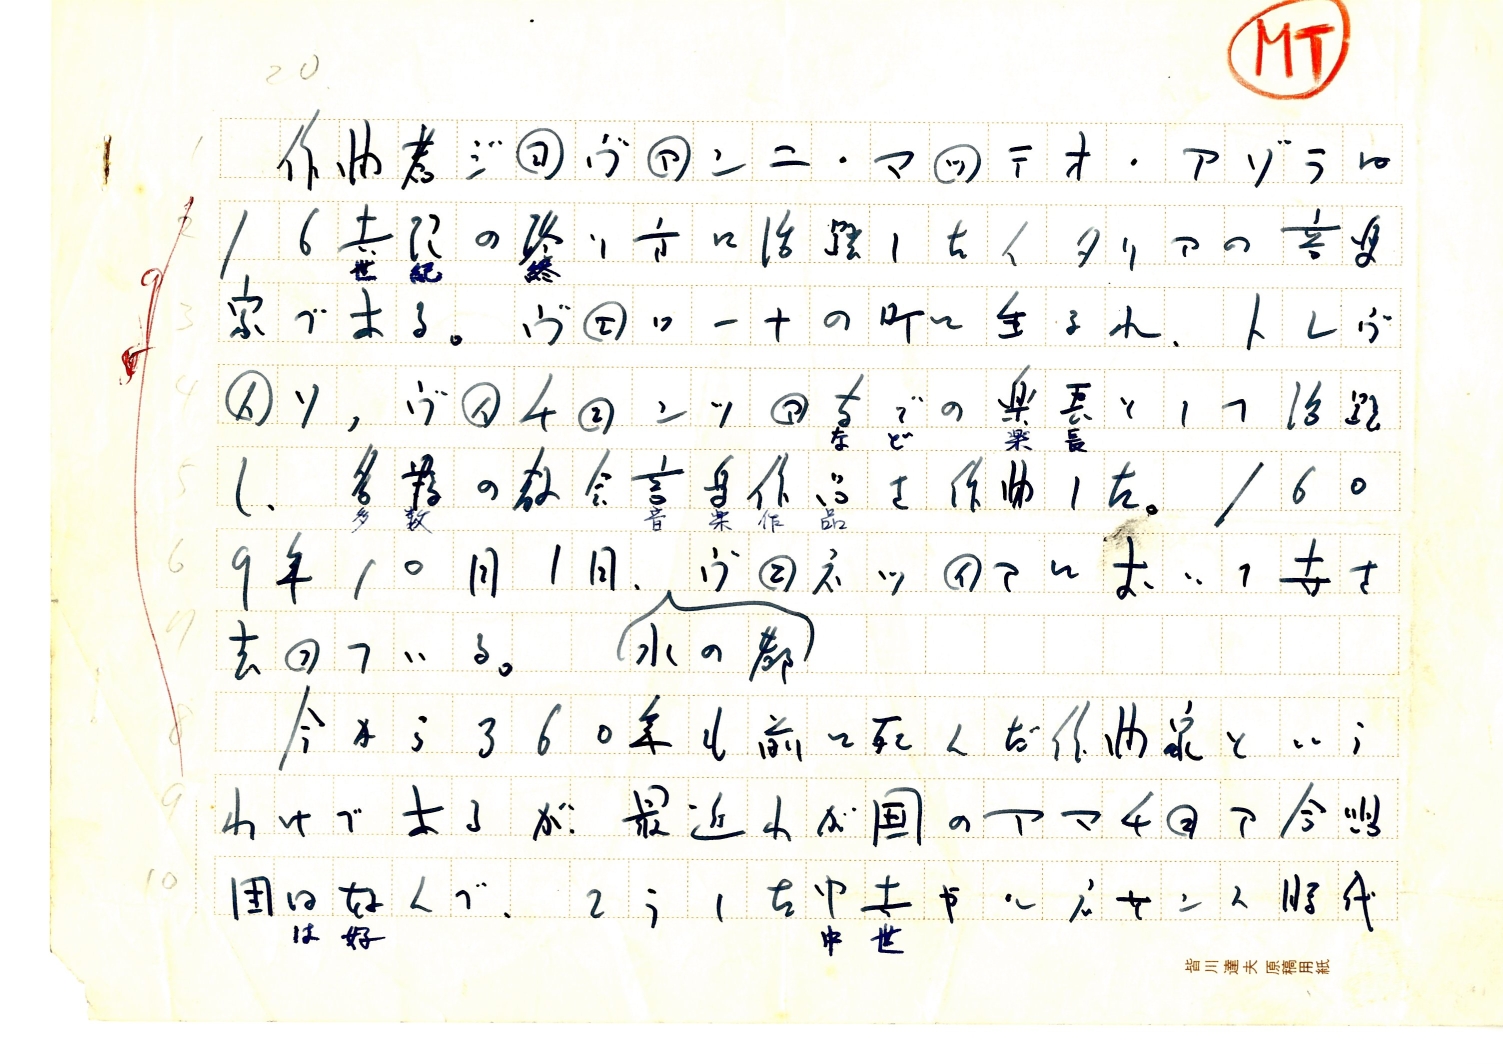 MT
20
1 作曲者ジョヴァンニ・マッテオ・アゾラは
2 16世紀の終り方に活躍したイタリアの音楽
世 紀 終
9
3 家である。ヴェローナの町に生まれ、トレヴ
4 ィソ,ヴィチェンツァなどの楽長として活躍
な ど 楽 長
5 し、多数の教会音楽作品を作曲した。/60
多 数 音 楽 作 品
6 9年10月1日、ヴェネツィアにおいて世を
7 去っている。 (水の都)
8 今から360年も前に死んだ作曲家という
9 わけであるが、最近わが国のアマチュア合唱
10 団は好んで、こうした中世やルネサンス時代
は 好 中 世
皆川達夫原稿用紙